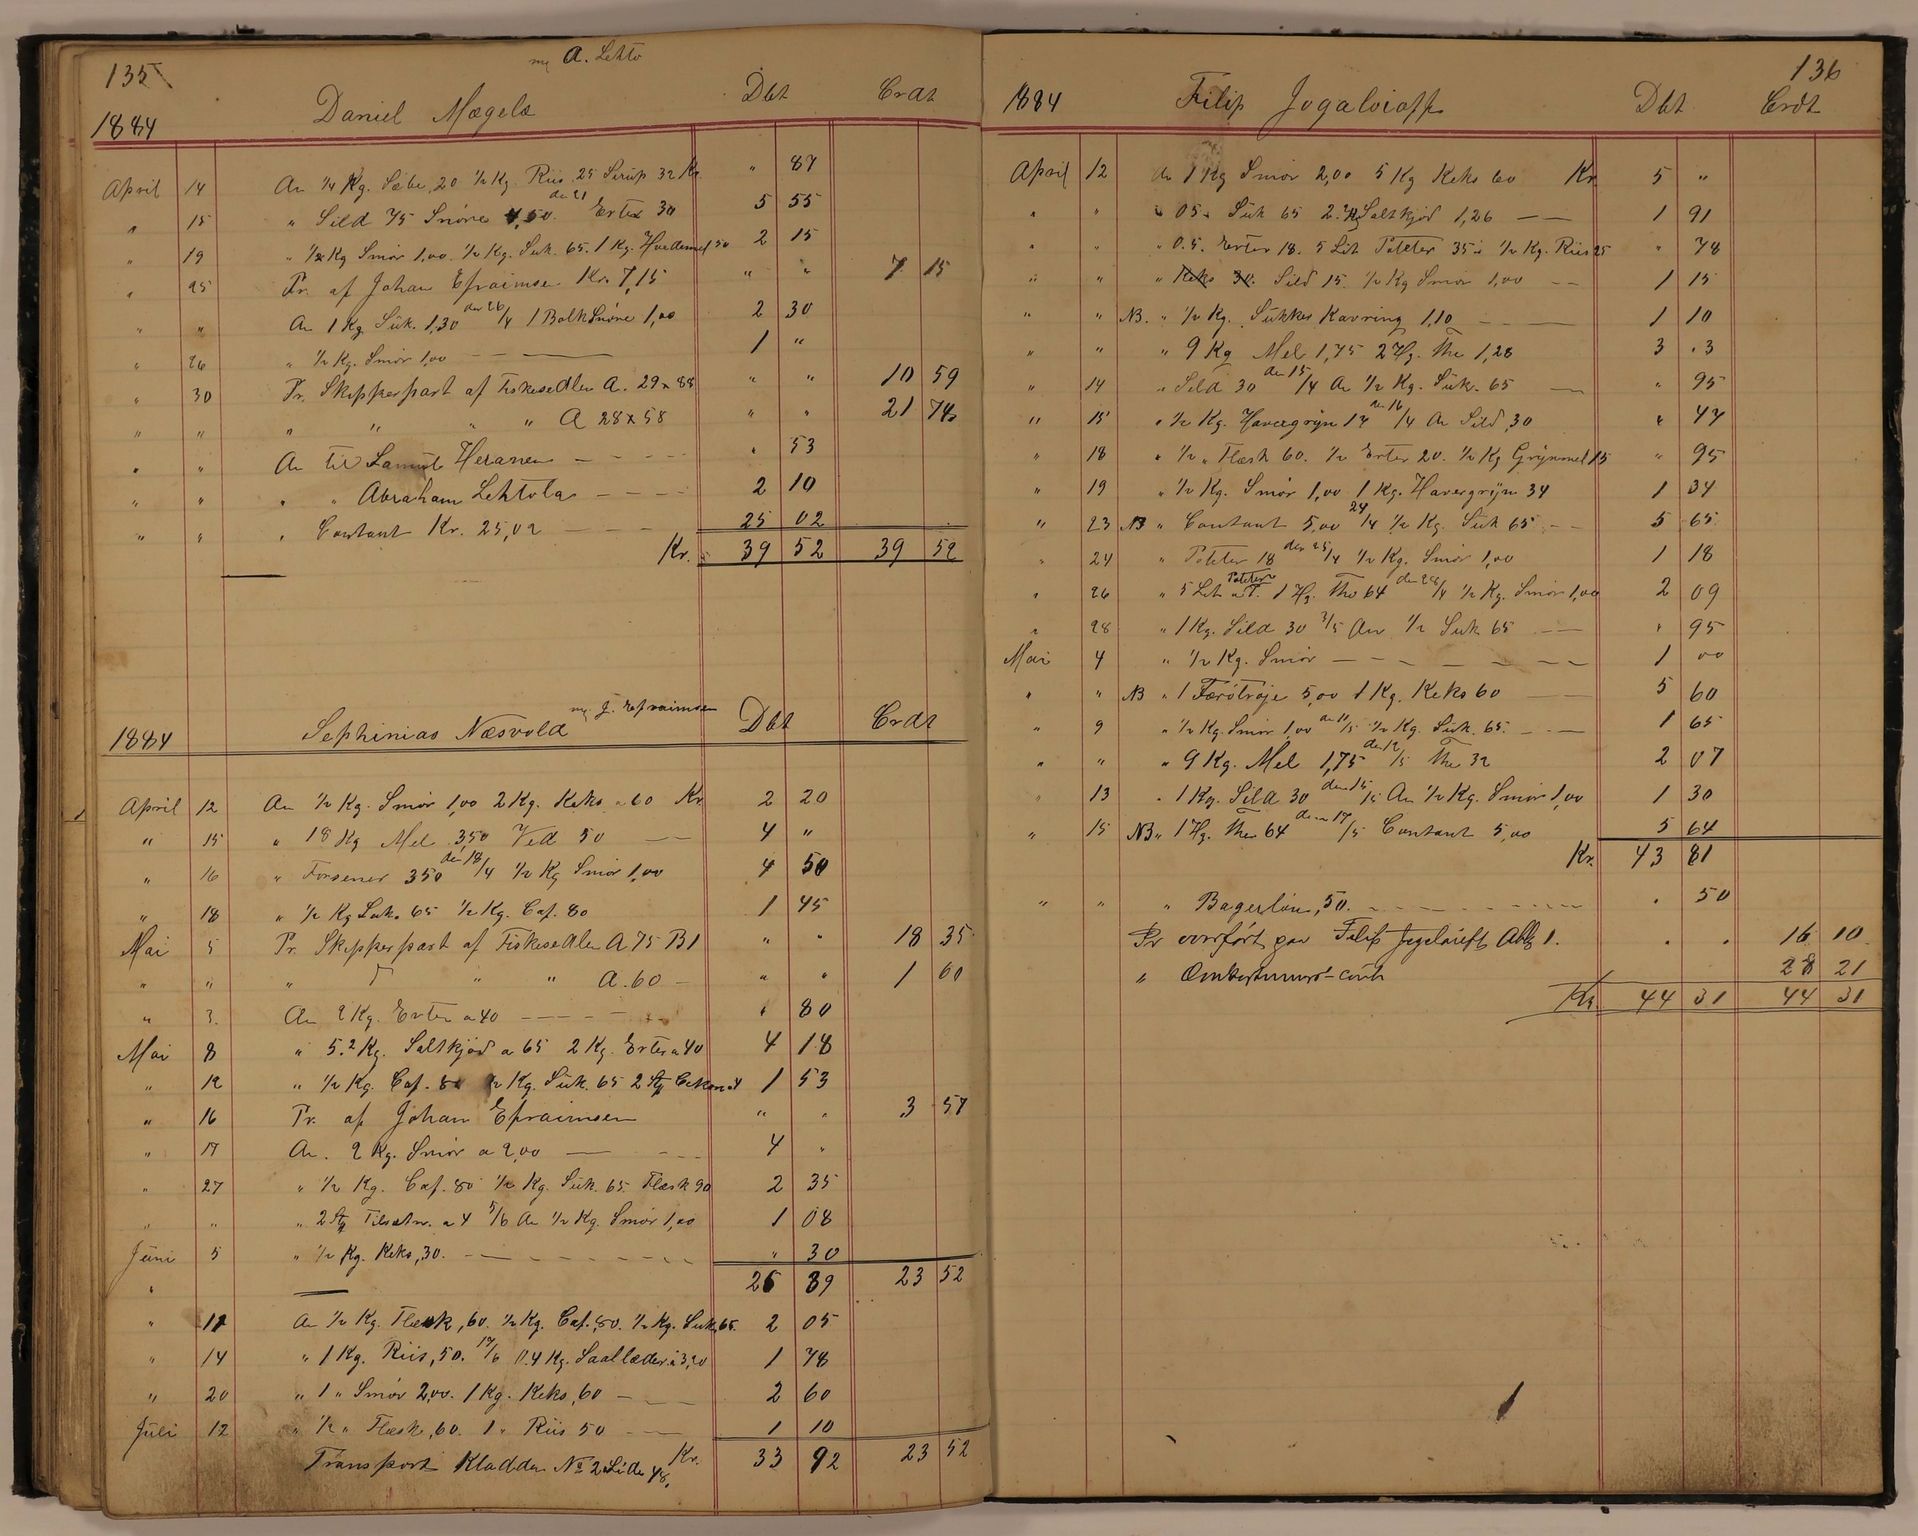 135
m/ A. Lehto
1884 Daniel Mægele Dbt Crdt
April 14 An 1/4 Kg. Sæbe, 20 1/2 Kg. Riis 25 Sirup 32 Kr. " 87
" 15 " Sild 75 Snøre 4,50. den 21 Erter 30 5 55
" 19 " 1/2 Kg Smør 1,00. 1/2 Kg. Suk. 65. 1 Kg. Hvedemel 50 2 15
" 25 Pr. af Johan Efraimsen Kr. 7,15 " " 7 15
" " An 1 Kg. Suk. 1,30 den 26/4 1 Bolk Snøre 1,00 2 30
" 26 " 1/2 Kg. Smør 1,00 1 "
" 30 Pr. Skipperpart af Fiskesedlen A. 29 x 88 " " 10 59
" " " " " " A 28 x 58 " " 21 78
" " An til Samuel Heranen " 53
" " " " Abraham Lehtola 2 10
" " " Contant Kr. 25,02 25 02
Kr. 39 52 39 52
m/ J. Efraimsen
1884 Sephinias Næsvold Dbt Crdt
April 12 An 1/2 Kg. Smør 1,00 2 Kg. Keks a 60 Kr 2 20
" 15 " 18 Kg Mel 3,50 Ved 50 4 "
" 16 " Forsener 350 den 18/4 1/2 Kg Smør 1,00 4 50
" 18 " 1/2 Kg Suk. 65 1/2 Kg. Caf. 80 1 45
Mai 5 Pr. Skipperpart af Fiskesedlen A 75 B 1 " " 18 35
" " " " " A. 60 " " 1 60
" 3. An 2 Kg. Erter a 40 " 80
Mai 8 " 5.2 Kg. Saltkjød a 65 2 Kg. Erter a 40 4 18
" 12 " 1/2 Kg. Caf. 80 1/2 Kg. Suk. 65 2 1 53
" 16 Pr. af Johan Efraimsen " " 3 57
" 17 An. 2 Kg. Smør a 2,00 4 "
" 27 " 1/2 Kg. Caf. 80 1/2 Kg. Suk. 65. Flæsk 90 2 35
" " " 2 a 4 5/6 An 1/2 Kg. Smør 1,00 1 08
Juni 5 " 1/2 Kg. Keks, 30. " 30
" 26 89 23 52
" 11 An 1/2 Kg. Flæsk, 60. 1/2 Kg. Caf. 80. 1/2 Kg. Suk, 65. 2 05
" 14 " 1 Kg. Riis, 50. 17/6 0.4 Kg. Saallæder a 3,20 1 78
" 20 " 1 " Smør 2,00. 1 Kg. Keks, 60 2 60
Juli 12 " 1/2 " Flæsk, 60. 1 " Riis 50 1 10
Transport Kladden No 2 Side 48. Kr. 33 92 23 52
136
1884 Filip Jogaloioff Dbt Crdt
April 12 An 1 Kg Smør 2,00 5 Kg Keks 60 Kr 5 "
" " " 05 " Suk 65 2. Saltkjød 1,26 1 91
" " " 0.5. Erter 18. 5 Lit Poteter 35 1/2 Kg. Riis 25 " 78
" " " Keks 30. Sild 15. 1/2 Kg Smør 1,00 1 15
" " NB. " 1/2 Kg. Sukker Kavring 1,10 1 10
" " " 9 Kg Mel 1,75 2 Hg. The 1,28 3 .3
" 14 " Sild 30 den 15/4 An 1/2 Kg. Suk. 65 " 95
" 15 " 1/2 Kg. Havregryn 17 den 16/4 An Sild, 30 " 47
" 18 " 1/2 " Flæsk 60. 1/2 Erter 20. 1/2 Kg Grynmel 15 " 95
" 19 " 1/2 Kg. Smør 1,00 1 Kg. Havregryn 34 1 34
" 23 NB " Contant 5,00 24/4 1/2 Kg. Suk 65 5 65
" 24 " Poteter 18 den 25/4 1/2 Kg. Smør 1,00 1 18
" 26 " 5 Lit Poteter 1 Hg. The 64 den 28/4 1/2 Kg. Smør 1,00 2 09
" 28 " 1 Kg. Sild 30 3/5 An 1/2 Suk. 65 " 95
Mai 4 " 1/2 Kg. Smør 1 00
" " NB " 1 Færötrøje 5,00 1 Kg. Keks 60 5 60
" 9 " 1/2 Kg. Smør 1,00 den 11/5 1/2 Kg. Suk. 65. 1 65
" " " 9 Kg. Mel 1,75 den 12/5 The 32 2 07
" 13 " 1 Kg. Sild 30 den 15/5 An 1/2 Kg. Smør 1,00 1 30
" 15 NB " 1 Hg. The 64 den 17/5 Contant 5,00 5 64
Kr. 43 81
" " " Bagerløn, 50. . 50
Pr overført paa Filip 1. . . 16 10
" 28 21
Kr. 44 31 44 31